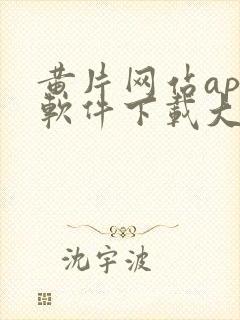 黄片网佔ap
軟件下載大
沈宇波